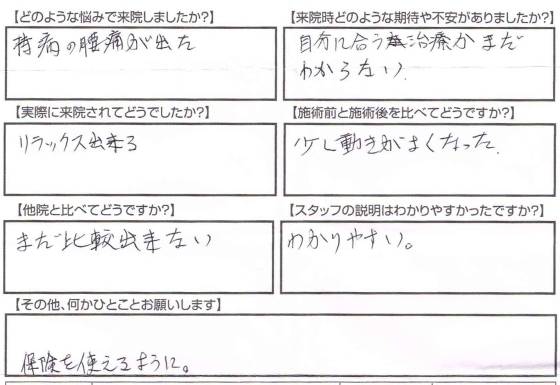 【どのような悩みで来院しましたか?】
持病の腰痛が出た
【来院時どのような期待や不安がありましたか?】
自分に合う治療かまだ
わからない
【実際に来院されてどうでしたか?】
リラックス出来る
【施術前と施術後を比べてどうですか?】
少し動きがよくなった。
【他院と比べてどうですか?】
まだ比較出来ない
【スタッフの説明はわかりやすかったですか?】
わかりやすい。
【その他、何かひとことお願いします】
保険を使えるように。